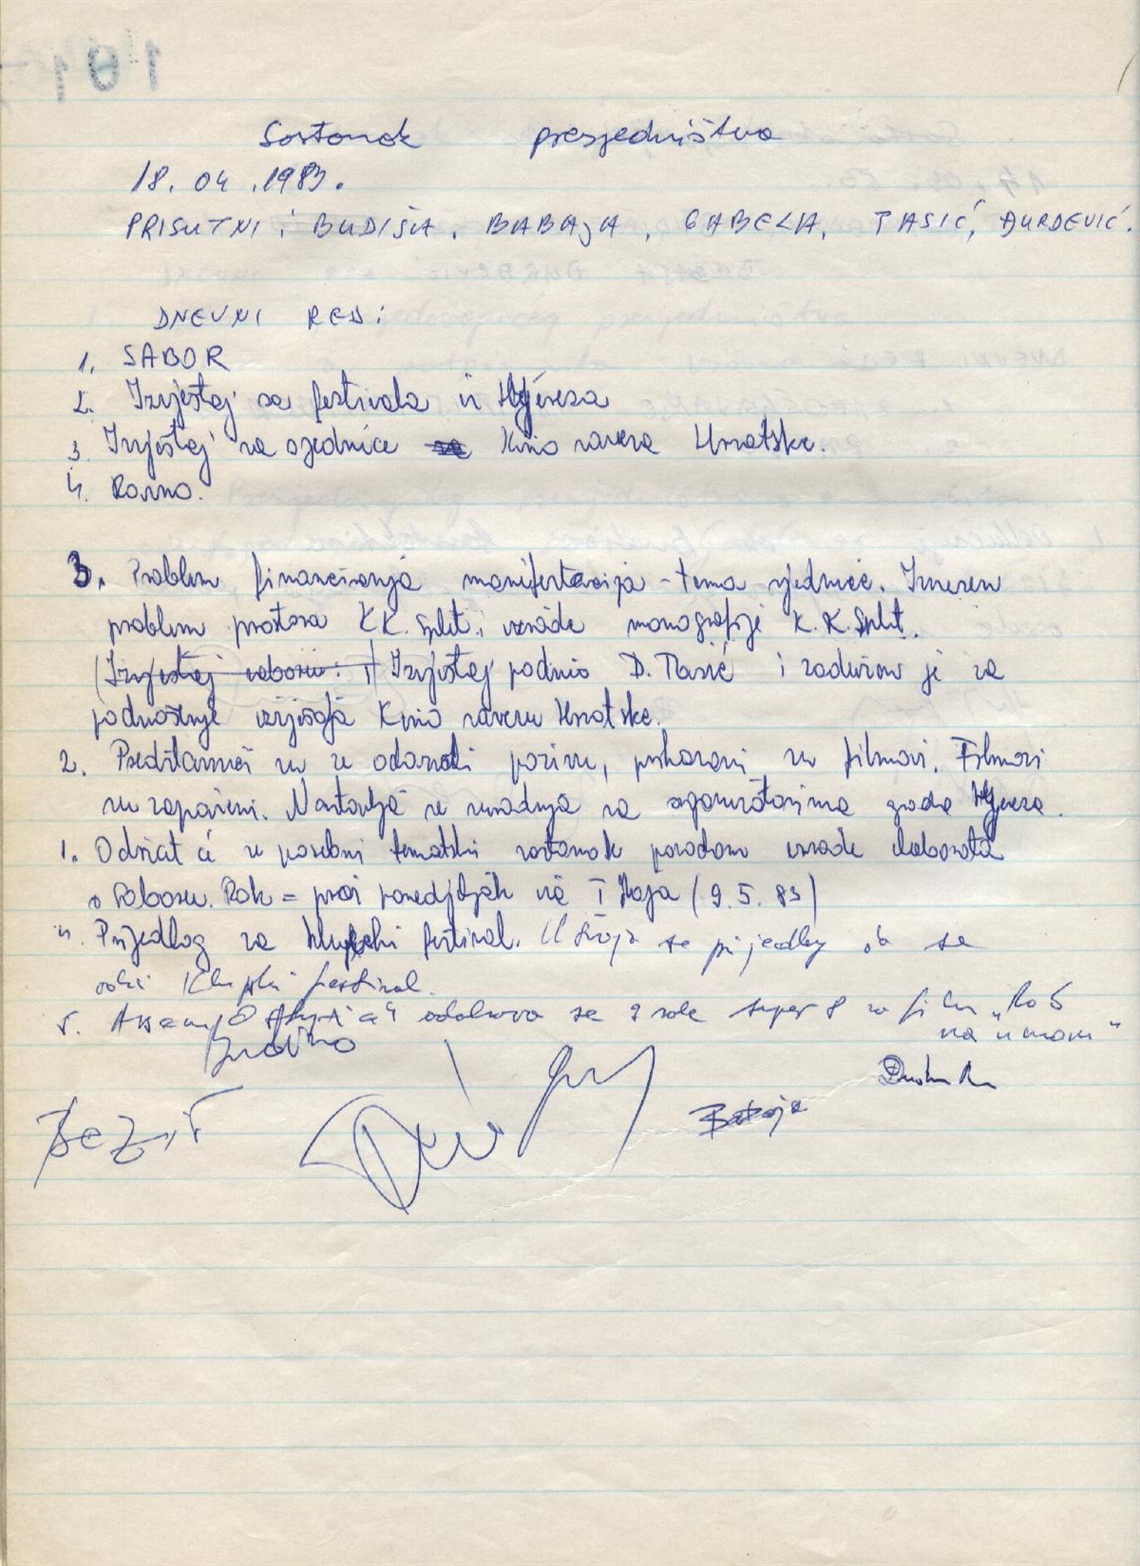 Sastanak presjedništva
18. 04. 1983.
PRISUTNI: BUDIŠA, BABAJA, GABELA, TASIĆ, ĐURĐEVIĆ.
DNEVNI RED:
1. SABOR
2. Izvještaj sa festivala iz Hyeresa
3. Izvještaj sa sjednice Kino saveza Hratske.
4. Razno.
3. Problem financiranja manifestacija - tema sjednice. Iznesen
problem prostora KK. Split i izrade monografije K. K. Split.
Izvještaj podnio D. Tasić i zadužen je za
podnošenje izvještaja Kino savezu Hrvatske.
2. Predstavnici su se odazvali pozivu, prikazani su filmovi. Filmovi
su zapaženi. Nastavlja se suradnja sa organizatorima grada Hyeresa.
1. Održat će se posebni tematski sastanak povodom izrade elaborata
o Saboru. Rok = prvi ponedjeljak iza I Maja (9. 5. 83)
4. Prijedlog za klupski festival. Usvaja se prijedlog da se
održi Klupski festival.
5. odobrava se 2 role super 8 za film "Rob
na umoru"